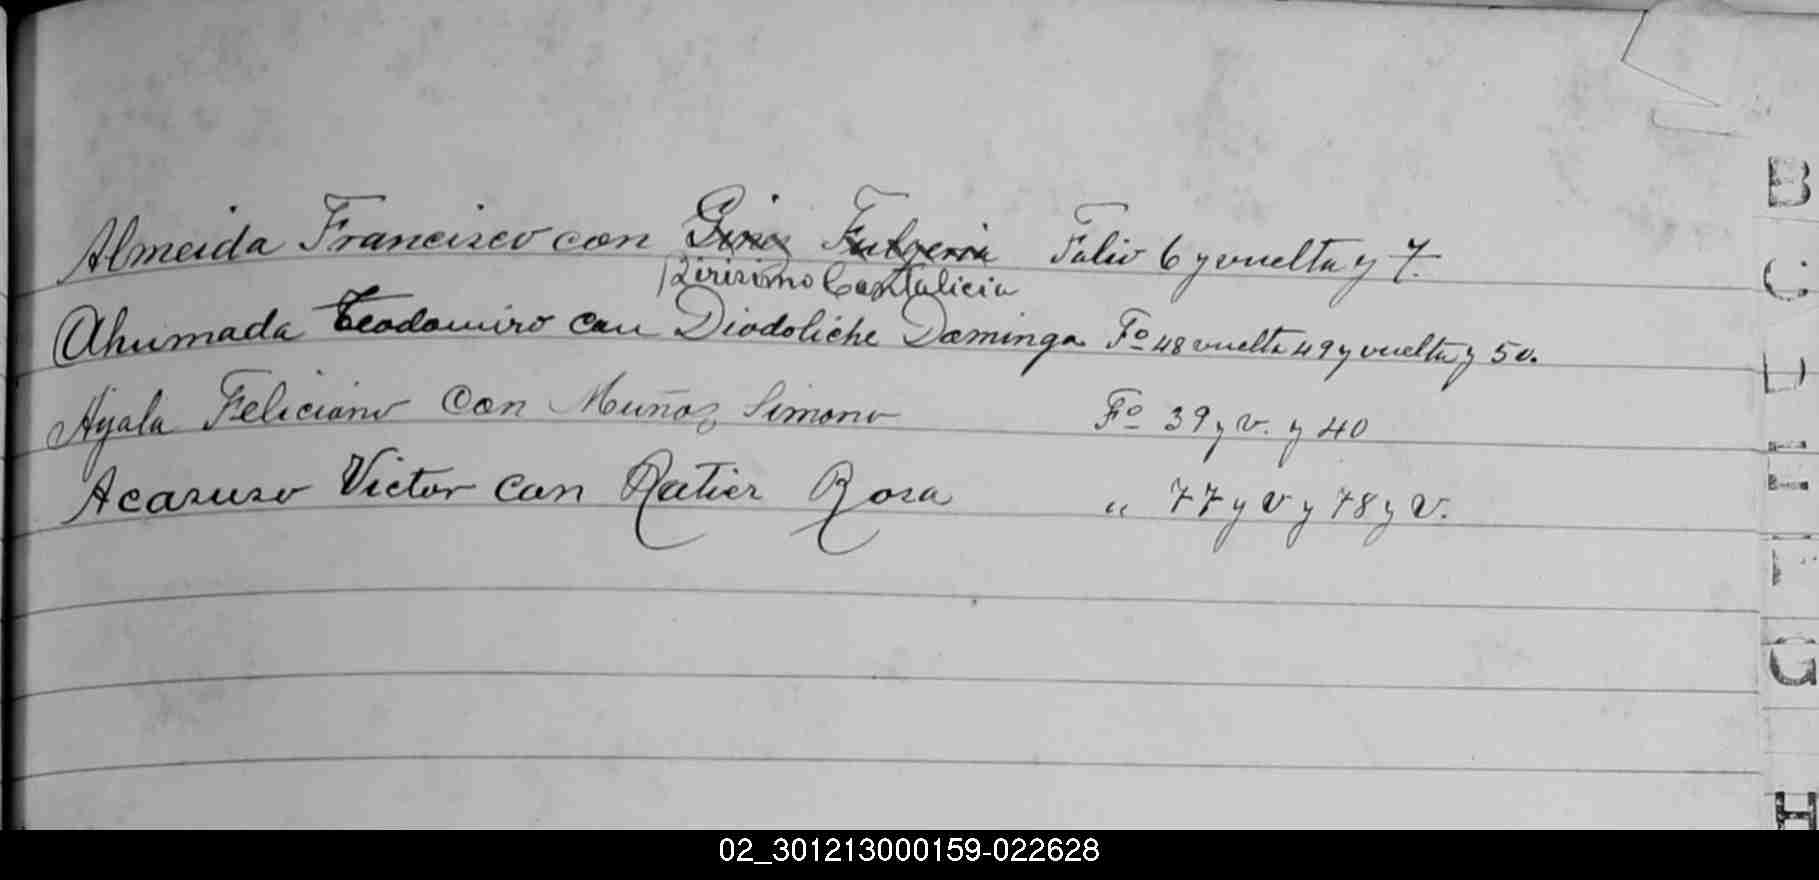 Almeida Francisco con Gimy Fulgeria Folio 6 y vuelta y 7.
Birisimo Cantalicia
Ahumada Teodomiro con Diodoliche Dominga Fº 48 vuelta 49 y vuelta y 50.
Ayala Feliciano con Muñoz Simona Fº 39 y v. y 40
Acasuso Victor con Ratier Rosa " 77 y v y 78 y v.
B
C
G
H
02_301213000159-022628